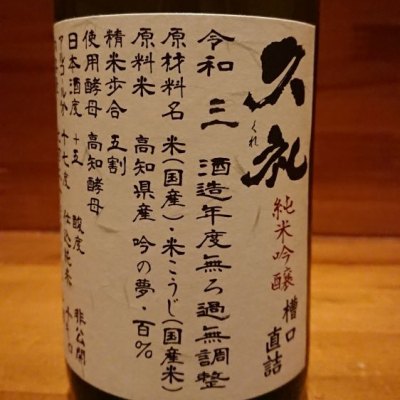 久礼
くれ
純米吟醸
槽口
直詰
令和三酒造年度無ろ過無調整
原材料名 米(国産)・米こうじ(国産米)
原料米 高知県産 吟の夢・百%
精米歩合 五割
使用酵母 高知酵母
日本酒度 +五 酸度 非公開
アルコール分 十七度